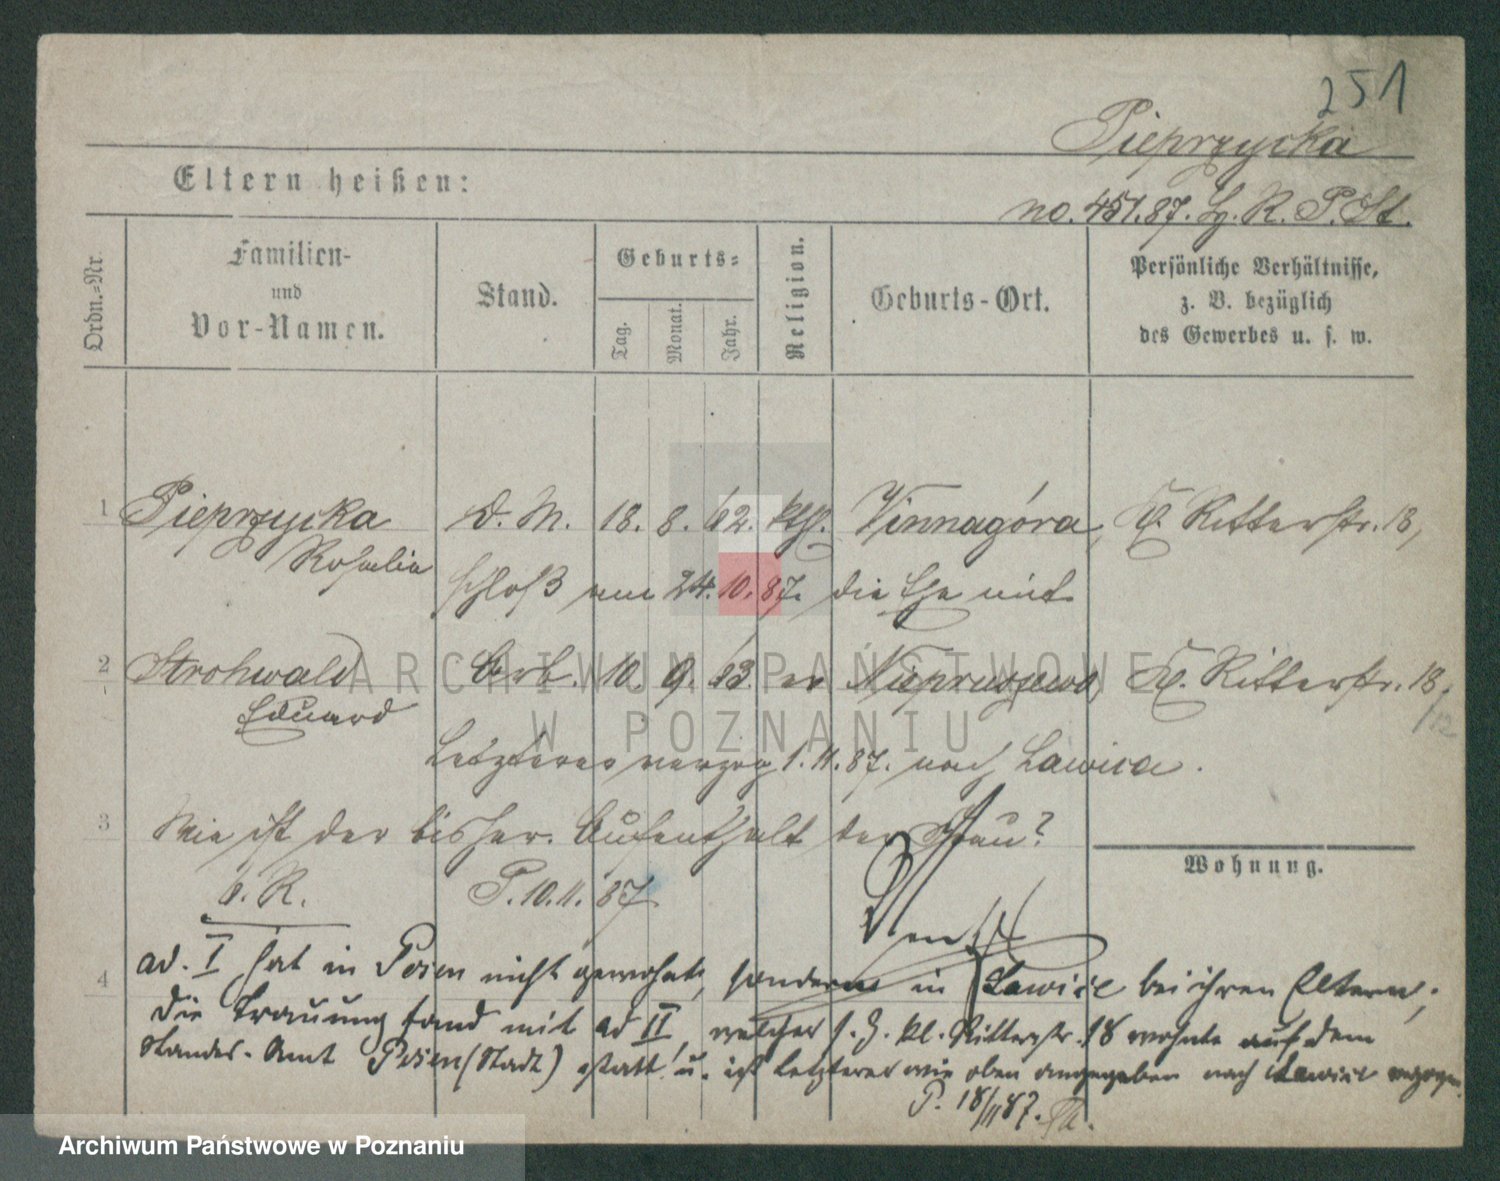 251
Pieprzycka
Eltern heißen:
no. 451.87. R. P. St.
Ordn.-Nr.
Familien-
und
Vor-Namen.
Stand.
Geburts-
Tag.
Monat.
Jahr.
Religion.
Geburts-Ort.
Persönliche Verhältnisse,
z. B. bezüglich
des Gewerbes u. s. w.
1 Pieprzycka D. M. 18. 8. 62. kth. Winnagóra, Kl. Ritterstr. 18,
Rosalie schloß am 24.10.87. die Ehe mit
2 Strohwald Arb. 10. 9. 63. ev Niepruszewo, Kl. Ritterstr. 18.
Eduard
Letzterer verzog 1.11.87. nach Lawica.
3 Wie ist der bisher. Aufenthalt der Frau?
Wohnung.
b. R. P. 10.11.87
4 ad. I hat in Posen nicht gewohnt, sondern in Lawice bei ihren Eltern,
die Trauung fand mit ad II, welcher s. Z. kl. Ritterstr. 18 wohnte auf dem
Standes-Amt Posen (Stadt) statt u. ist letzterer wie oben angegeben nach Lawice verzogen.
P. 18/11 87.
ARCHIWUM PAŃSTWOWE
W POZNANIU
Archiwum Państwowe w Poznaniu